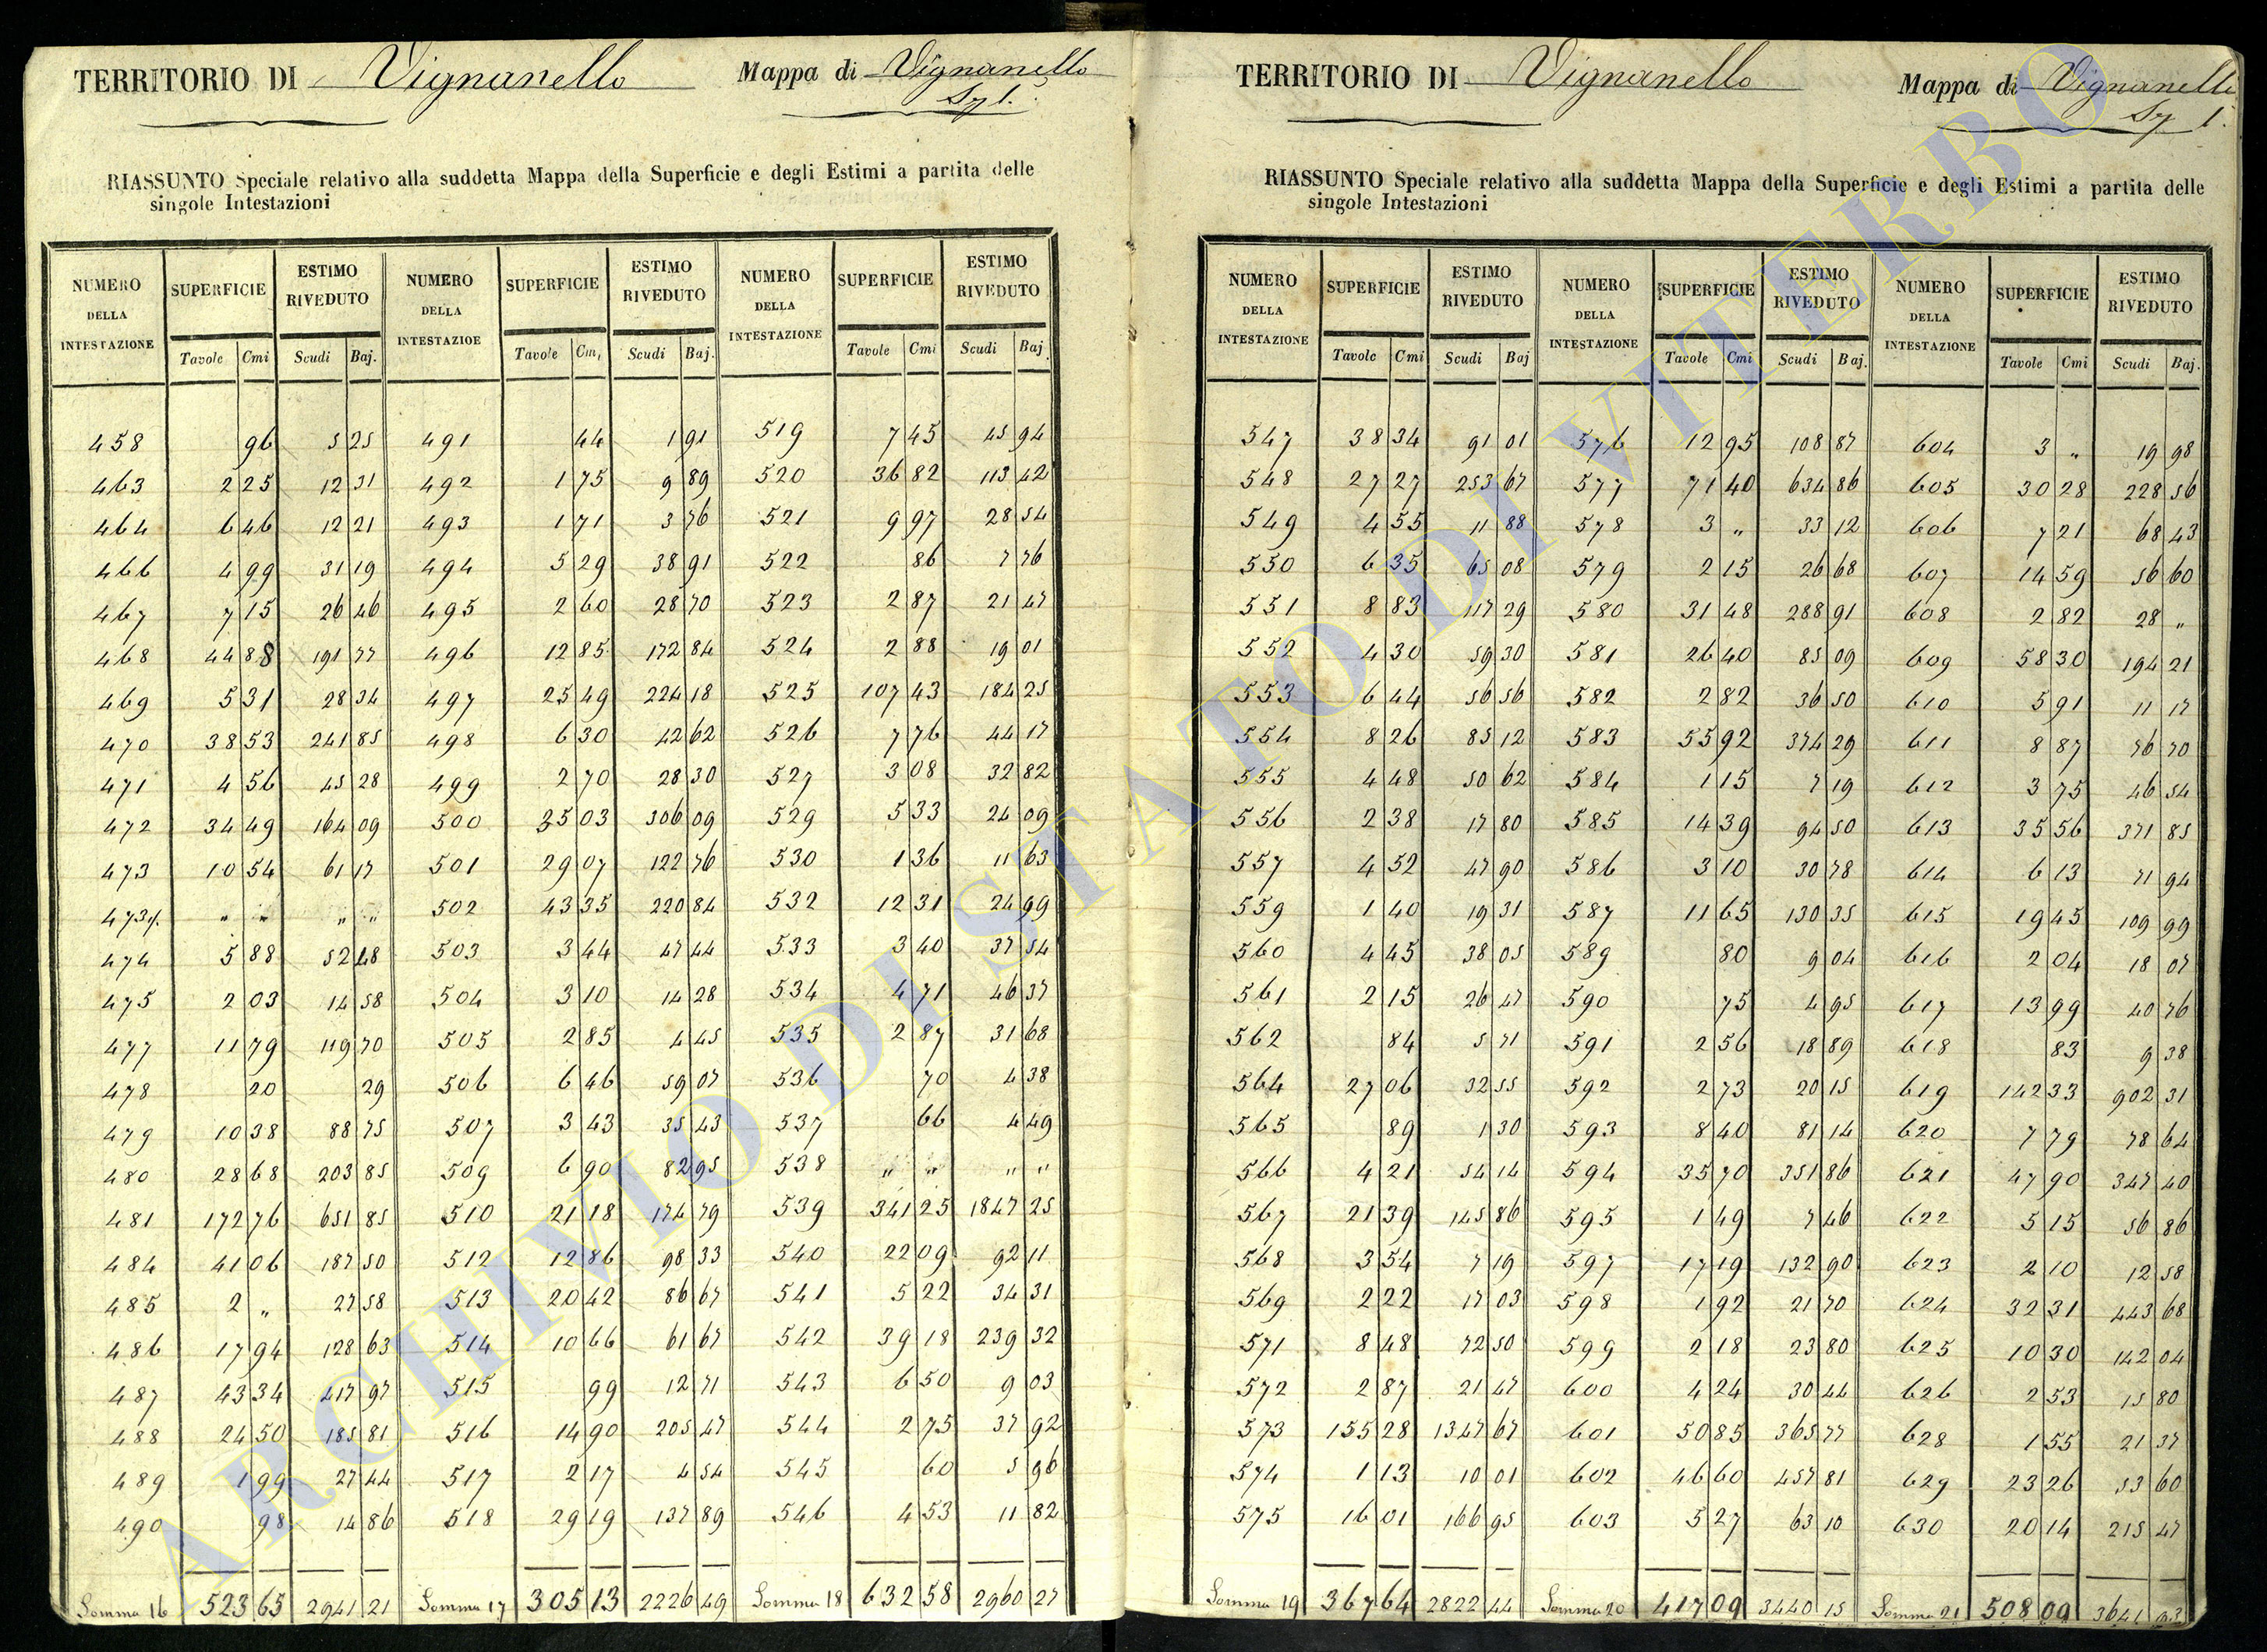 TERRITORIO DI Vignanello Mappa di Vignanello
RIASSUNTO Speciale relativo alla suddetta Mappa della Superficie e degli Estimi a partita delle
singole Intestazioni
NUMERO DELLA INTESTAZIONE SUPERFICIE ESTIMO RIVEDUTO NUMERO DELLA INTESTAZIOE SUPERFICIE ESTIMO RIVEDUTO NUMERO DELLA INTESTAZIONE SUPERFICIE ESTIMO RIVEDUTO
Tavole Cmi Scudi Baj. Tavole Cmi Scudi Baj. Tavole Cmi Scudi Baj.
458 96 5 25 491 44 1 91 519 7 45 45 94
463 2 25 12 31 492 1 75 9 89 520 36 82 113 42
464 6 46 12 21 493 1 71 3 76 521 9 97 28 54
466 4 99 31 19 494 5 29 38 91 522 86 7 76
467 7 15 26 46 495 2 60 28 70 523 2 87 21 47
468 44 88 191 77 496 12 85 172 84 524 2 88 19 01
469 5 31 28 34 497 25 49 224 18 525 107 43 184 25
470 38 53 241 85 498 6 30 42 62 526 7 76 44 17
471 4 56 45 28 499 2 70 28 30 527 3 08 32 82
472 34 49 164 09 500 35 03 306 09 529 5 33 24 09
473 10 54 61 17 501 29 07 122 76 530 1 36 11 63
473 „ „ „ „ 502 43 35 220 84 532 12 31 24 99
474 5 88 52 48 503 3 44 47 44 533 3 40 37 54
475 2 03 14 58 504 3 10 14 28 534 4 71 46 37
477 11 79 119 70 505 2 85 4 45 535 2 87 31 68
478 20 29 506 6 46 59 07 536 70 4 38
479 10 38 88 75 507 3 43 35 43 537 66 4 49
480 28 68 203 85 509 6 90 82 95 538 „ „ „ „
481 172 76 651 85 510 21 18 174 79 539 341 25 1847 25
484 41 06 187 50 512 12 86 98 33 540 22 09 92 11
485 2 „ 27 58 513 20 42 86 67 541 5 22 34 31
486 17 94 128 63 514 10 66 61 67 542 39 18 239 32
487 43 34 417 97 515 99 12 71 543 6 50 9 03
488 24 50 185 81 516 14 90 205 47 544 2 75 37 92
489 1 99 27 44 517 2 17 4 54 545 60 5 96
490 98 14 86 518 29 19 137 89 546 4 53 11 82
Somma 16 523 65 2941 21 Somma 17 305 13 2226 49 Somma 18 632 58 2960 27
TERRITORIO DI Vignanello Mappa di Vignanello
RIASSUNTO Speciale relativo alla suddetta Mappa della Superficie e degli Estimi a partita delle
singole Intestazioni
NUMERO DELLA INTESTAZIONE SUPERFICIE ESTIMO RIVEDUTO NUMERO DELLA INTESTAZIONE SUPERFICIE ESTIMO RIVEDUTO NUMERO DELLA INTESTAZIONE SUPERFICIE ESTIMO RIVEDUTO
Tavole Cmi Scudi Baj Tavole Cmi Scudi Baj. Tavole Cmi Scudi Baj.
547 38 34 91 01 576 12 95 108 87 604 3 „ 19 98
548 27 27 253 67 577 71 40 634 86 605 30 28 228 56
549 4 55 11 88 578 3 „ 33 12 606 7 21 68 43
550 6 35 65 08 579 2 15 26 68 607 14 59 56 60
551 8 83 117 29 580 31 48 288 91 608 2 82 28 „
552 4 30 59 30 581 26 40 85 09 609 58 30 194 21
553 6 44 56 56 582 2 82 36 50 610 5 91 11 17
554 8 26 85 12 583 55 92 374 29 611 8 87 76 70
555 4 48 50 62 584 1 15 7 19 612 3 75 46 54
556 2 38 17 80 585 14 39 94 50 613 35 56 371 85
557 4 52 47 90 586 3 10 30 78 614 6 13 71 94
559 1 40 19 31 587 11 65 130 35 615 19 45 109 99
560 4 45 38 05 589 80 9 04 616 2 04 18 07
561 2 15 26 47 590 75 4 95 617 13 99 40 76
562 84 5 71 591 2 56 18 89 618 83 9 38
564 27 06 32 55 592 2 73 20 15 619 142 33 902 31
565 89 1 30 593 8 40 81 14 620 7 79 78 64
566 4 21 54 14 594 35 70 351 86 621 47 90 347 40
567 21 39 145 86 595 1 49 7 46 622 5 15 56 86
568 3 54 7 19 597 17 19 132 90 623 2 10 12 58
569 2 22 17 03 598 1 92 21 70 624 32 31 443 68
571 8 48 72 50 599 2 18 23 80 625 10 30 142 04
572 2 87 21 47 600 4 24 30 44 626 2 53 15 80
573 155 28 1347 67 601 50 85 365 77 628 1 55 21 37
574 1 13 10 01 602 46 60 457 81 629 23 26 53 60
575 16 01 166 95 603 5 27 63 10 630 20 14 215 47
Somma 19 367 64 2822 44 Somma 20 417 09 3440 15 Somma 21 508 09 3641
ARCHIVIO DI STATO DI VITERBO